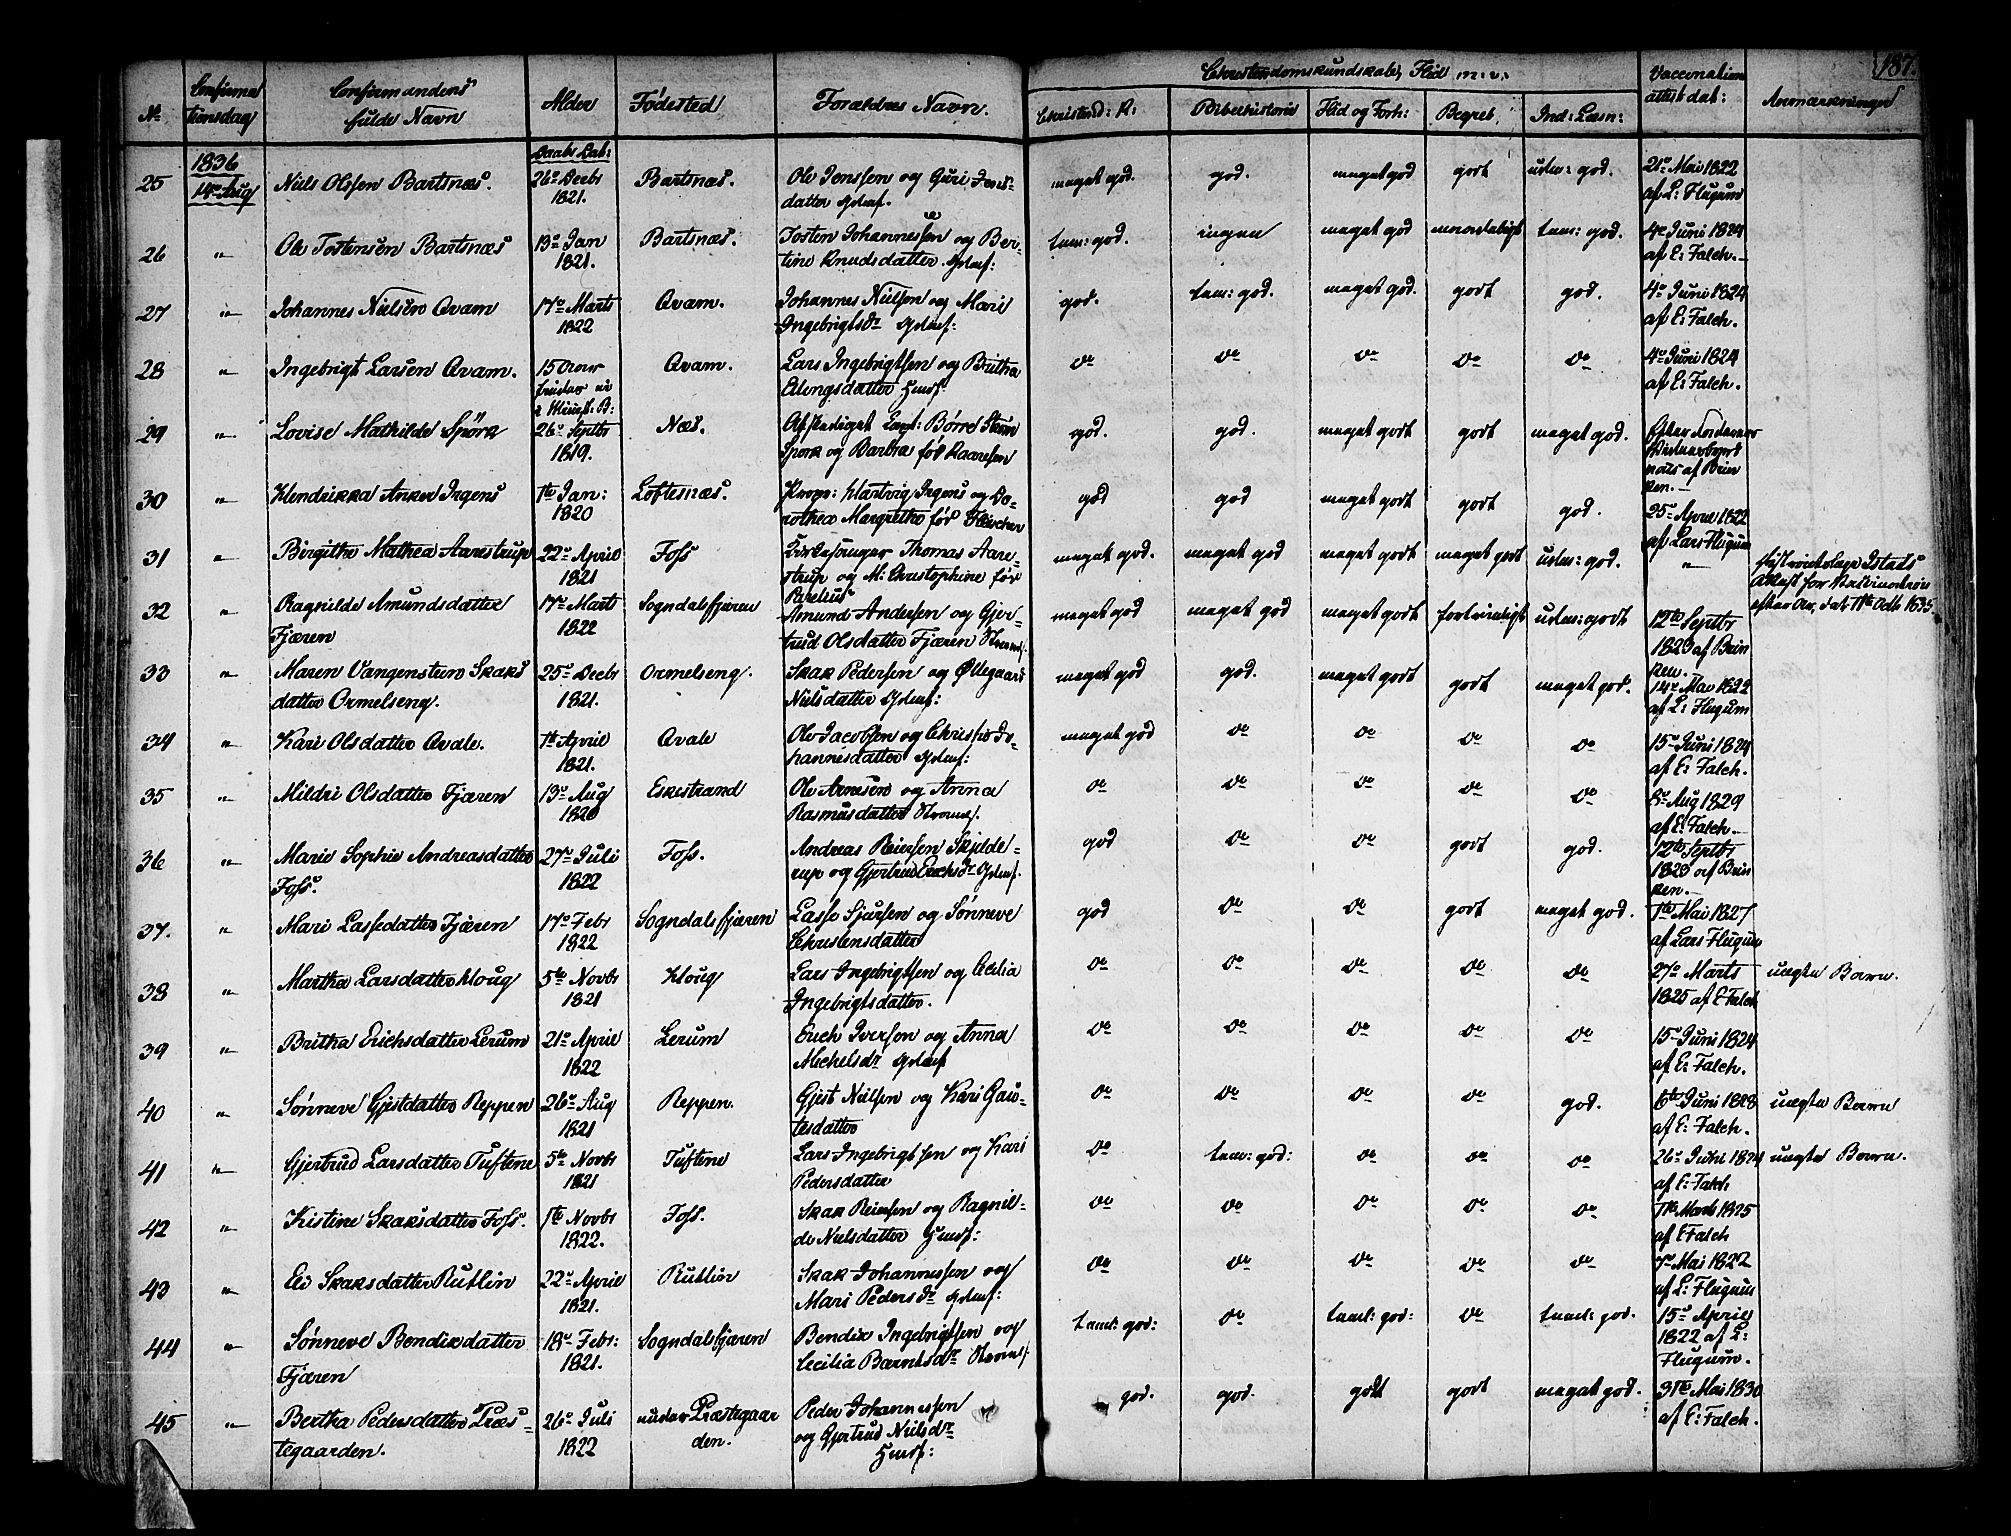 187.
Christendomskundskab, Flid m: v:
No
Confirmationsdag
Confirmandens fulde Navn
Alder
Fødested
Forældres Navn.
Christend: K:
Bibelhistorie
Flid og Forh:
Begreb
Ind: Læsn:
Vaccination attest dat:
Anmærkninger
1836
Daabs Dat:
25 14de Aug Niels Olssen Bartsnæs. 26de Decbr 1821. Bartsnæs. Ole Jenssen og Guri Jensdatter Gdmf. meget god. god. meget god godt udm: god. 21de Mai 1822 af L: Flugum
26 " Ole Tostensen Bartsnæs 19de Jan 1821. Bartsnæs. Tosten Johannessen og Bertine Knudsdatter. Gdmf: tem: god. ingen meget god maadeligt tem: god. 4de Juni 1824 af E: Falch.
27 " Johannes Nielsen Qvam 17de Marts 1822 Qvam. Johannes Nielsen og Mari Ingebrigtsdr Gdmf: god. tem: god. meget god. godt god. 4de Juni 1824 af E: Falch.
28 " Ingebrigt Larsen Qvam. 15 Qvam. Lars Ingebrigtsen og Britha Ellingsdatter Huusf. do do do do do 4de Juni 1824 af E: Falch.
29 " Lovise Mathilde Spörck 26de Septbr 1819. Næs. Afskediget Capt: Børre Spork og Barbra fød Kaaresen god. god. meget godt godt meget god.
30 " Hendrikka Anker Irgens 1te Jan: 1820 Loftesnæs. Propr: Hartvig Irgens og Dorothea Margrethe fød Fleischer god god meget godt godt god. 25de April 1822 af Lars Flugum
31 " Birgithe Mathea Aarestrup 22de April 1821 Foss Kirkesanger Thomas Aarestrup og M: Christophine fød meget god. meget god meget godt meget godt udm: god. " Attest for Vaccination
32 " Ragnilde Amundsdatter Fjæren 17de Marts 1822 Sogndalsfjæren Amund Andersen og Gjertrud Olsdatter Fjæren Strandf. meget god meget god meget godt fortrinligt udm: godt 12te Septbr 1823 af Brinken.
33 " Maren Vangensteen Skaksdatter Ormelseng. 25de Decbr 1821. Ormelseng. Skak Pedersen og Øllegaard Nielsdatter Gdmf: meget god god. meget godt godt meget god. 14de Mai 1822 af L: Flugum
34 " Kari Olsdatter Qvale. 1te April 1821. Qvale Ole Jacobsen og Christie Johannesdatter Gdmf: meget god do do do do 15de Juni 1824 af E: Falch.
35 " Mildri Olsdatter Fjæren 13de Aug 1820 Eskestrand Ole Arnesen og Anna Rasmusdatter Strandf. do do do do do 8de Aug 1829 af E: Falch.
36 " Marie Sophie Andreasdatter Foss. 27de Juli 1822 Foss. Andreas Reiersen Skjelderup og Gjertrud Erichsdr Gdmf. god do do godt god. 12te Septbr 1823 af Brinken.
37. " Mari Lassedatter Fjæren 17de Febr 1822 Sogndalsfjæren Lasse Sjursen og Sønneve Christensdatter god do do godt meget god. 1te Mai 1827 af Lars Flugum
38 " Martha Larsdatter Kloug 5te Novbr 1821 Kloug Lars Ingebrigtsen og Cecilia Ingebrigtsdatter. do do do do do 27de Marts 1825 af E Falch uægte Barn.
39 " Britha Erichsdatter Lerum 21de April 1822 Lerum Erich Iversen og Anna Michelsdr Gdmf do do do do do 15de Juni 1824 af E: Falch.
40 " Sønneve Gjestdatter Reppen 26de Aug 1821 Reppen. Gjest Nielsen og Kari Gautesdatter do do do do god. 6te Juni 1828 af E: Falch. uægte Barn
41 " Gjertrud Larsdatter Tuftene 5te Novbr 1821 Tuftene Lars Ingebrigtsen og Kari Pedersdatter do tem: god: do do do 26de Juni 1824 af E: Falch uægte Barn.
42 " Kistine Skaksdatter Foss. 1te Novbr 1822. Foss. Skak Reiersen og Ragnilde Nielsdatter Huusf: do do do do do 1te Marts 1825 af E Falch
43 " Eli Skaksdatter Rutlin 22de April 1821. Rutlin Skak Johannessen og Mari Pedersdr Gdmf: do do do do do 7de Mai 1822 af L: Flugum
44 " Sønneve Bendixdatter Fjæren 18de Febr: 1821. Sogndalsfjæren Bendix Ingebrigtsen og Cecilia Berntsdr Strandf. teml: god: do teml: god: do teml: god. 15de April 1822 af L: Flugum.
45 " Bertha Pedersdatter Præstegaarden. 26de Juli 1822 under Præstegaarden. Peder Johannessen og Gjertrud Nielsdr Huusf: god. god. godt godt meget god. 31te Mai 1830 af E: Falch.